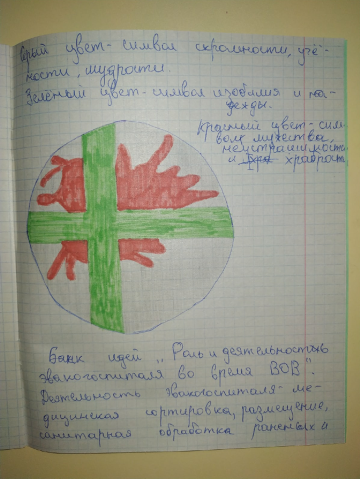 Серый цвет-символ скромности, учё-
ности, мудрости.
Зелёный цвет-символ изобилия и на-
дежды.
Красный цвет-сим-
вол мужества,
неустрашимость
и храброст.
Банк идей „Роль и деятельностью
эвакогоспиталя во время ВОВ".
Деятельность эвакогоспиталя- ме-
дицинская сортировка, размещение,
санитарная обработка раненых и